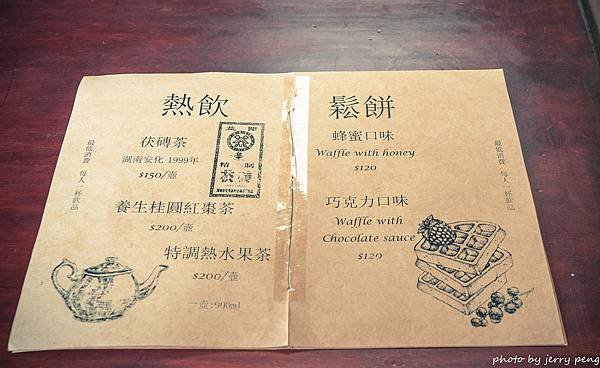 熱飲
茯磚茶
湖南安化 1999年
$150/壺
養生桂圓紅棗茶
$200/壺
特調熱水果茶
$200/壺
一壺:900ml
最低消費 每人一杯飲品
益陽
精制
茯磚
鬆餅
蜂蜜口味
Waffle with honey
$120
巧克力口味
Waffle with
Chocolate sauce
$120
最低消費 每人一杯飲品
photo by jerry peng